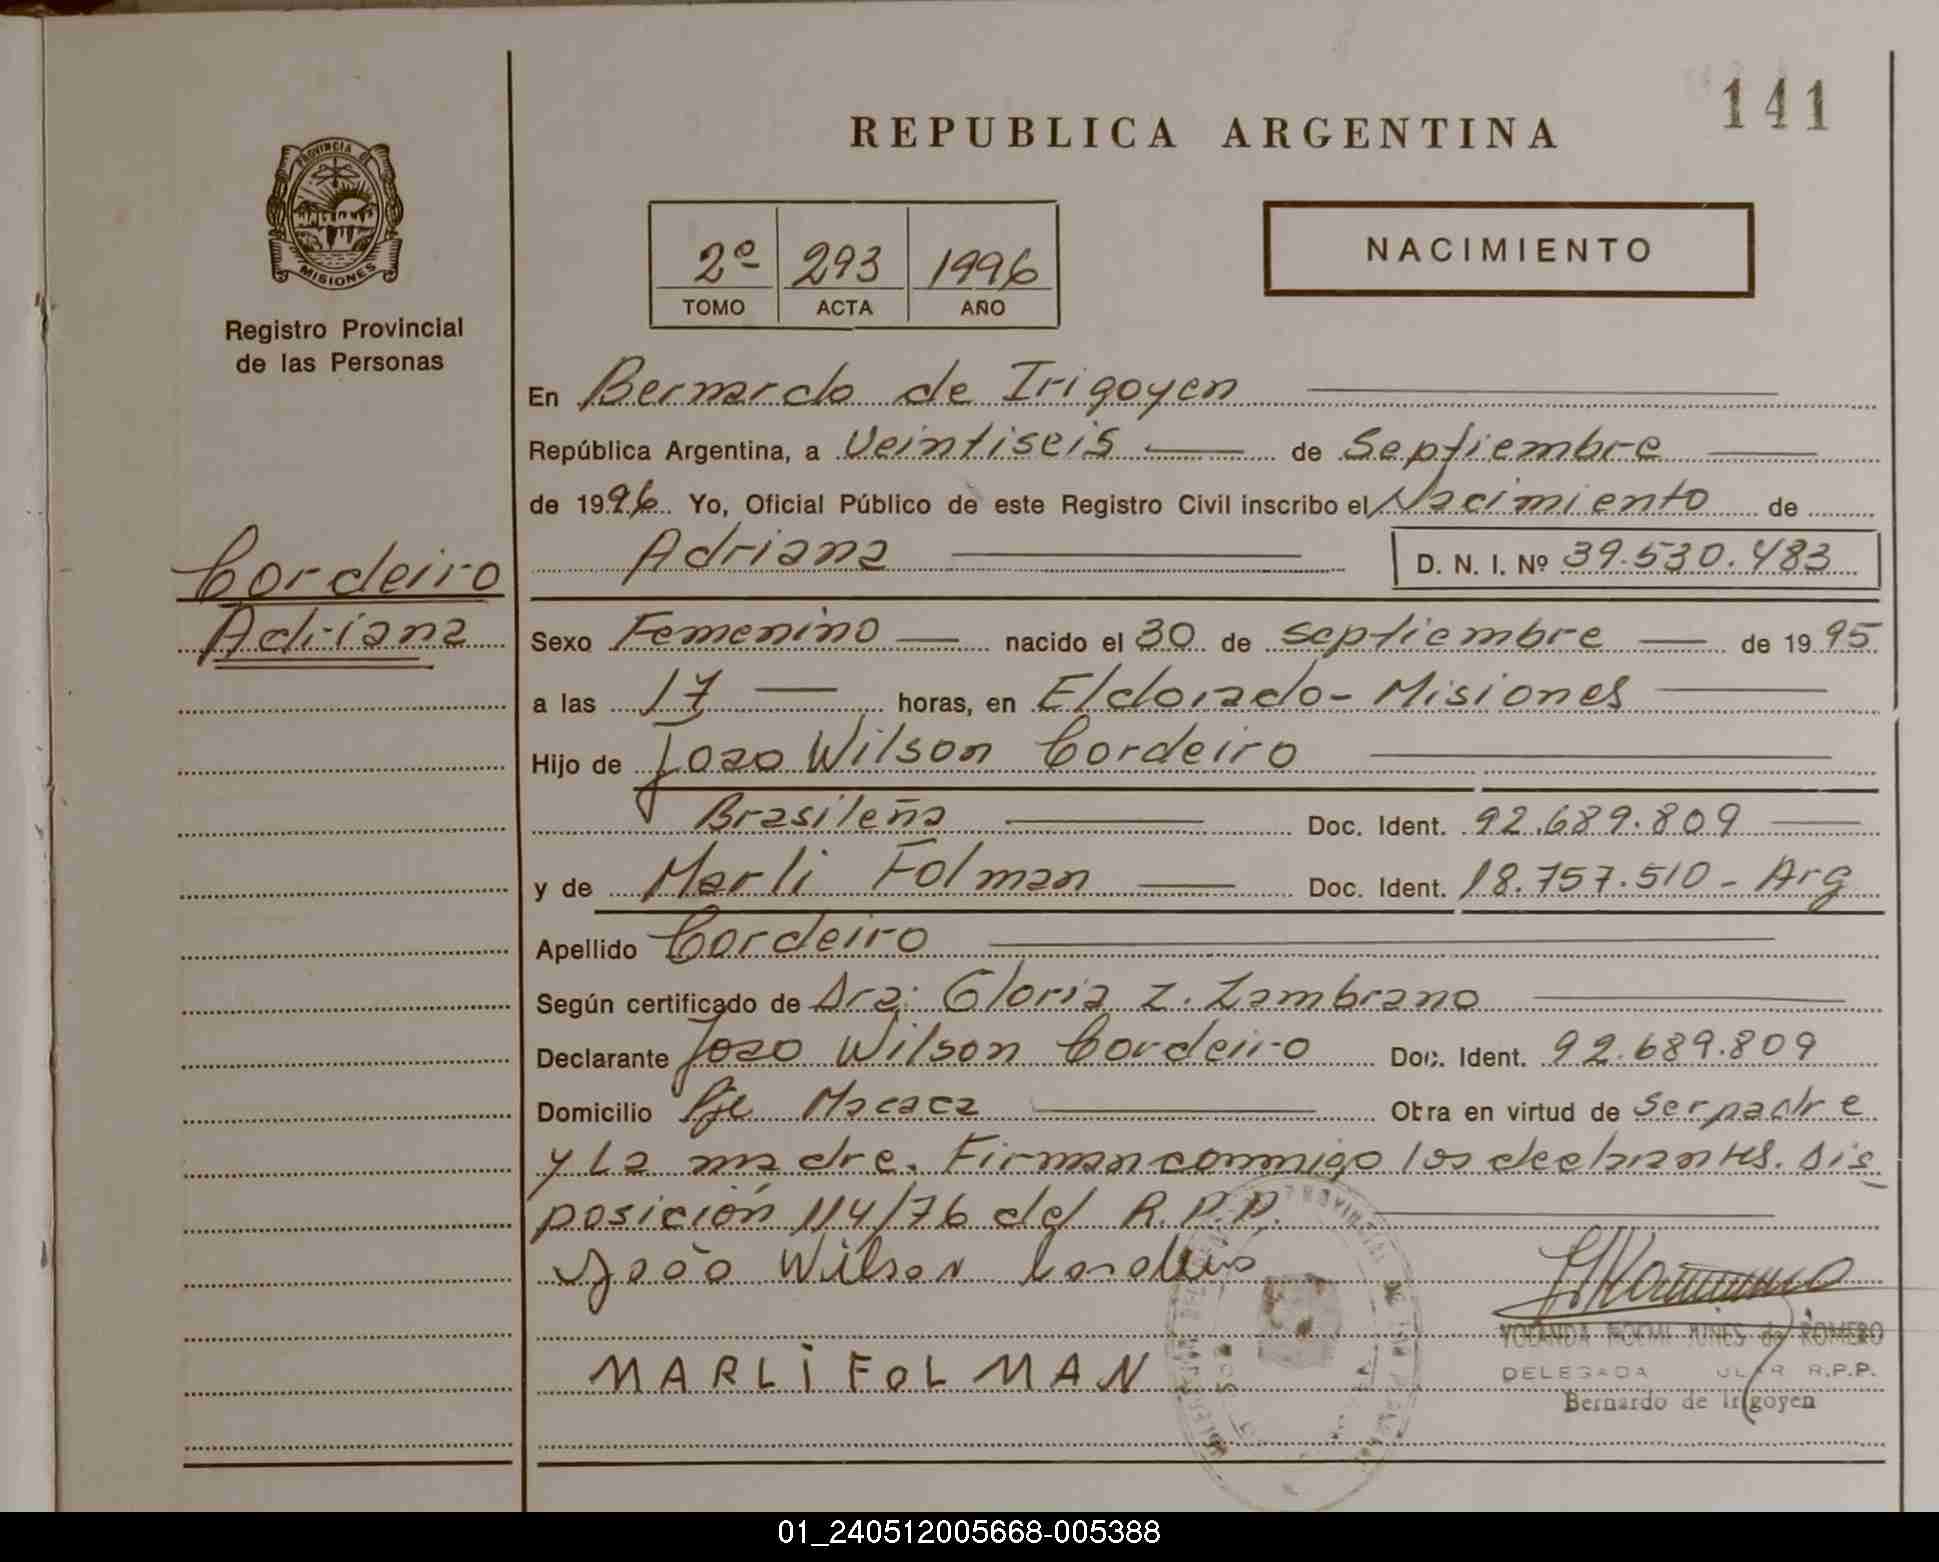 141
REPUBLICA ARGENTINA
PROVINCIA DE
MISIONES
Registro Provincial
de las Personas
2º 293 1996
TOMO ACTA AÑO
NACIMIENTO
En Bernardo de Irigoyen
República Argentina, a Veintiseis de Septiembre
de 1996. Yo, Oficial Público de este Registro Civil inscribo el Nacimiento de
Adriana D. N. I. Nº 39.530.483
Cordeiro
Adriana
Sexo Femenino nacido el 30 de septiembre de 1995
a las 17 horas, en Eldorado - Misiones
Hijo de Joao Wilson Cordeiro
Brasileña Doc. Ident. 92.689.809
y de Marli Folman Doc. Ident. 18.757.510 - Arg
Apellido Cordeiro
Según certificado de Dra: Gloria Z. Zambrano
Declarante Joao Wilson Cordeiro Doc. Ident. 92.689.809
Domicilio Pje Macaca Obra en virtud de ser padre
y La madre. Firman conmigo los declarantes. Dis
posición 114/76 del R.P.P.
João Wilson Cordeiro
MARLI FOLMAN
YOLANDA NOEMI de ROMERO
DELEGADA R.P.P.
Bernardo de Irigoyen
01_240512005668-005388